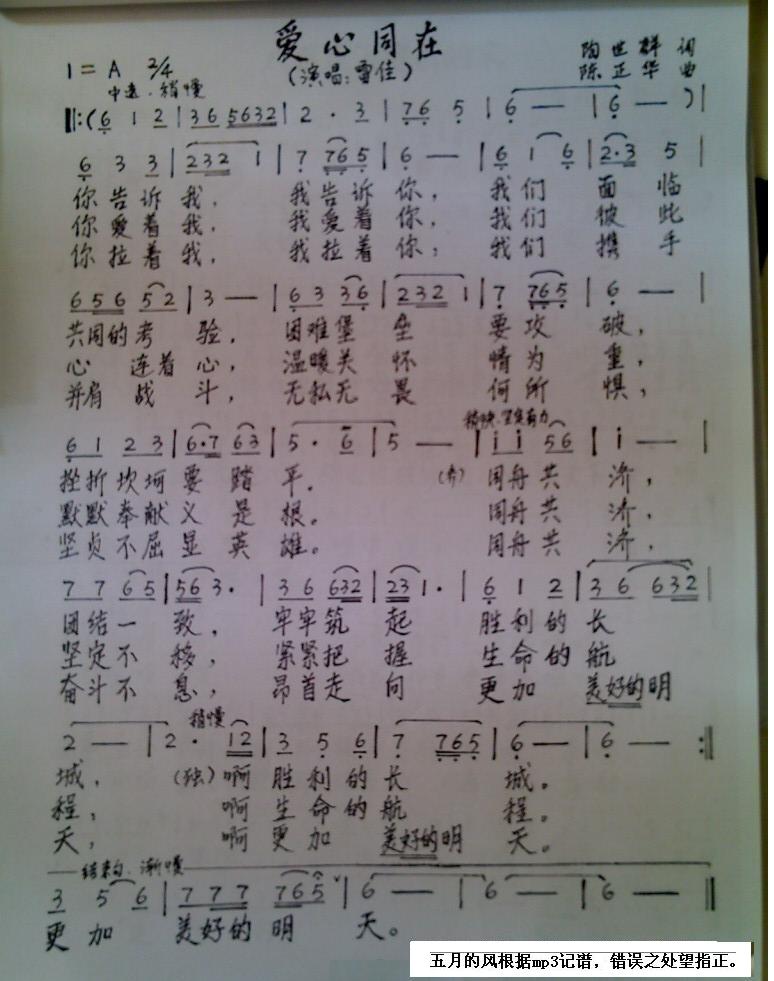 爱心同在
陶世群 词
1=A 2/4
(演唱:雷佳)
陈正华 曲
中速·稍慢
‖:(6 1 2 | 3 6 5632 | 2 · 3 | 76 5 | 6 — | 6 — )|
6 3 3 | 232 1 | 7 765 | 6 — | 6 1 6 | 2·3 5 |
你告诉我, 我告诉你, 我们 面临
你爱着我, 我爱着你, 我们 彼此
你拉着我, 我拉着你, 我们 携手
656 52 | 3 — | 6 3 36 | 232 1 | 7 765 | 6 — |
共同的考 验, 困难堡 垒 要攻 破,
心 连着心, 温暖关 怀 情为 重,
并肩 战 斗, 无私无 畏 何所 惧,
稍快·坚实有力
61 23 | 6·7 63 | 5 · 6 | 5 — | i i 56 | i — |
挫折坎坷要 踏 平。 (齐) 同舟共 济,
默默奉献义 是 根。 同舟共 济,
坚贞不屈显 英 雄。 同舟共 济,
7 7 65 | 56 3· | 3 6 632 | 23 1· | 6 1 2 | 3 6 632 |
团结一 致, 牢牢筑 起 胜利的长
坚定不 移, 紧紧把 握 生命的航
奋斗不 息, 昂首走 向 更加 美好的明
稍慢
2 — | 2 · 12 | 3 5 6 | 7 765 | 6 — | 6 — :‖
城, (独)啊 胜利的长 城。
程, 啊 生命的航 程。
天, 啊 更加 美好的明 天。
结束句·渐慢
3 5 6 | 7 7 7 765 | 6 — | 6 — | 6 — ‖
更加 美好的明 天。
五月的风根据mp3记谱,错误之处望指正。